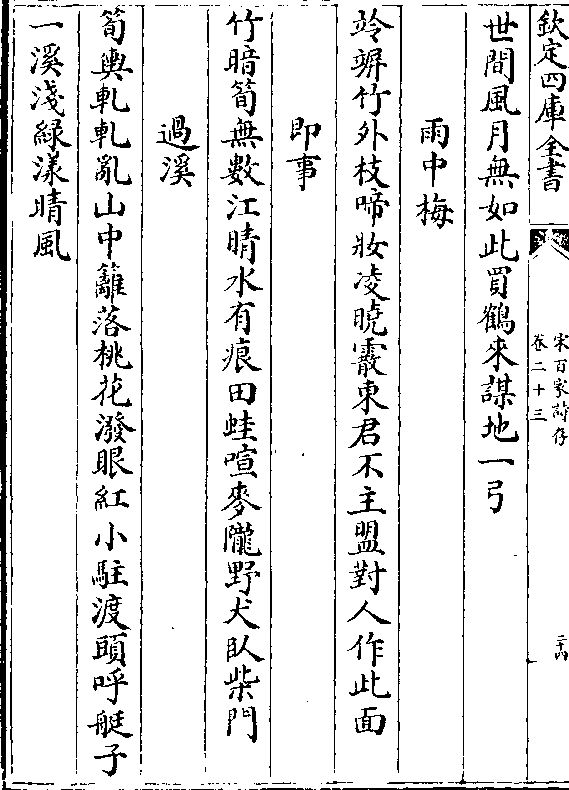 欽定四庫全書
宋百家詩存
卷二十三
世間風月無如此買鶴來謀地一弓
雨中梅
竛竮竹外枝啼妝凌曉霰東君不主盟對人作此面
即事
竹暗筍無數江晴水有痕田蛙喧麥隴野犬臥柴門
過溪
筍輿軋軋亂山中籬落桃花潑眼紅小駐渡頭呼艇子
一溪淺綠漾晴風